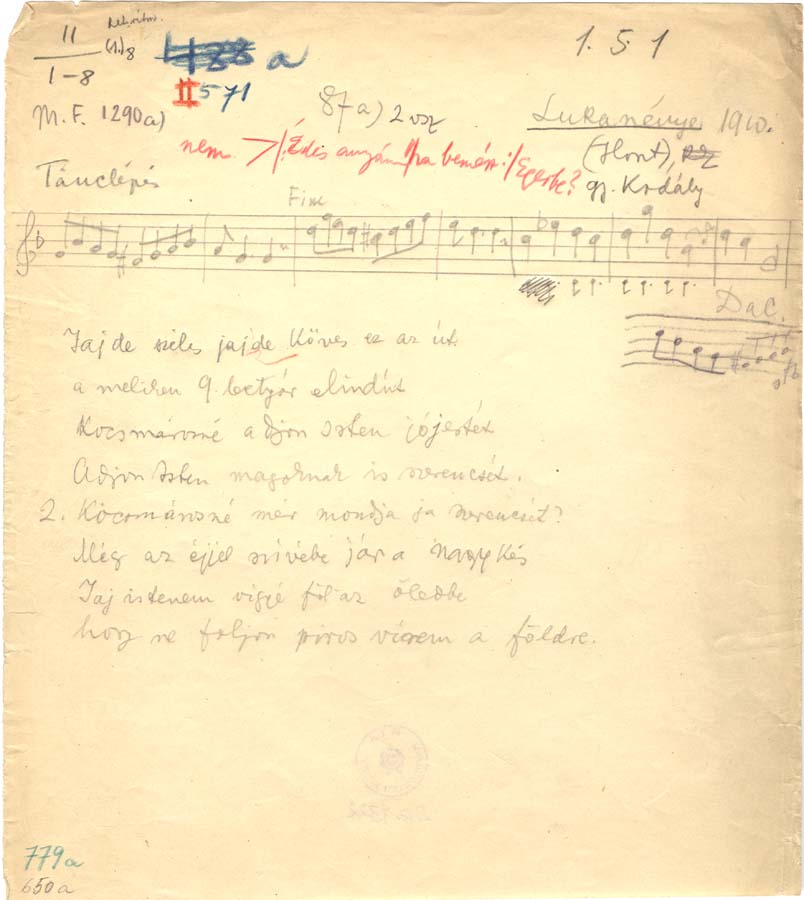 11
1-8
(1.)8
488 a
II 571
1. 5. 1
M. F. 1290a)
87a) 2 vsz
Lukanénye 1910.
(Hont),
gy. Kodály
nem > /:Édes anyám ha bemész:/ Egerbe?
Tánclépés
Fine
DaC.
Jaj de széles jajde Köves ez az út
a meliken 9. betyár elindút
Kocsmárosné adjon Isten jójestét
Adjon Isten magoknak is szerencsét.
2. Kocsmárosné mér mondja ja szerencsét?
Még az éjjel szivébe jár a nagy Kés
Jaj istenem vigyé föl az öledbe
hogy ne foljon piros vérem a földre.
779a
650a